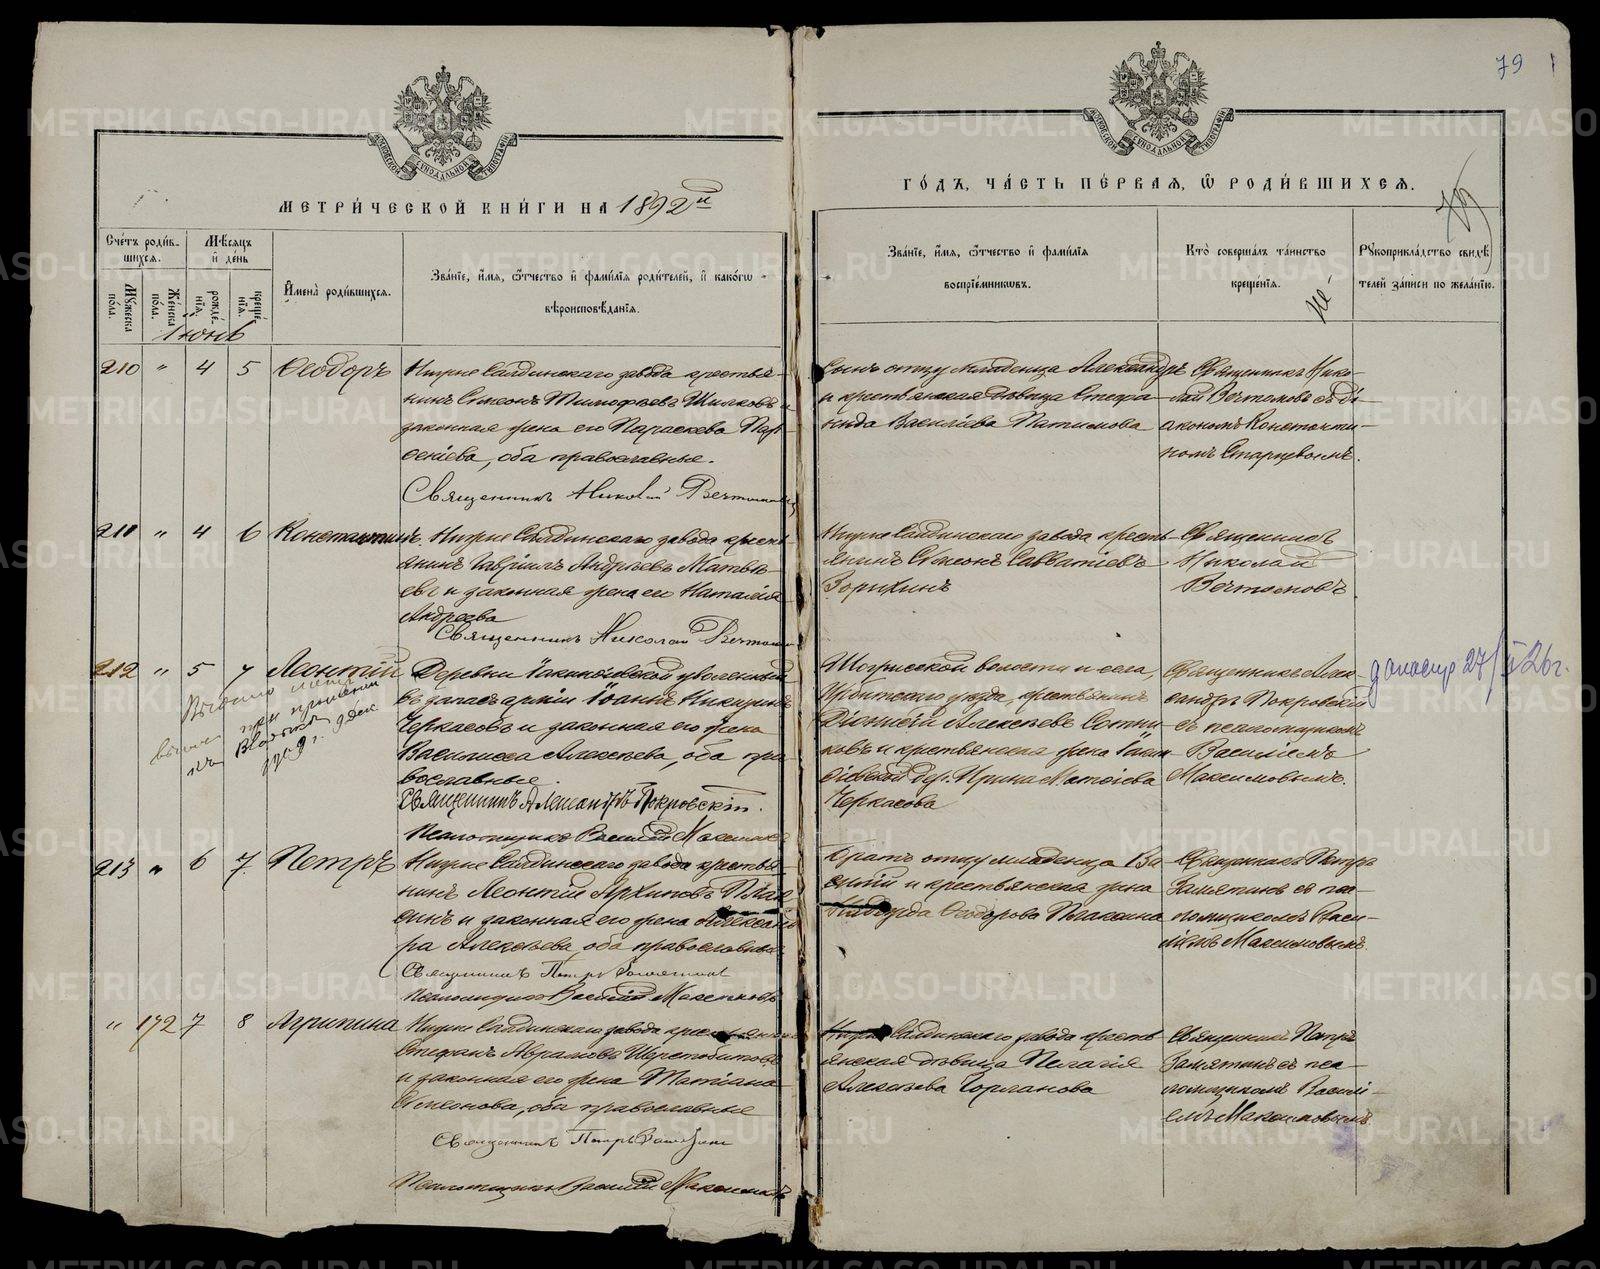 79
МЕТРИ́ЧЕСКОЙ КНИ́ГИ НА 1892й
ГО́ДЪ, ЧА́СТЬ ПЕ́РВАЯ, Ѿ РОДИ́ВШИХСЯ.
Сче́тъ роди́в-
шихся.
Мѣ́сяцъ
и де́нь
Му́жеска
по́ла.
Же́нска
по́ла.
рожде́-
нія.
креще́
нія.
И҆мена̀ роди́вшихся.
Зва́ніе, и҆́мя, ѻ҆́тчество и҆ фами́лія роди́телей, и҆ како́гѡ
вѣроисповѣ́данія.
Зва́ніе, и҆́мя, ѻ҆́тчество и҆ фами́лія
воспріе́мниковъ.
Кто̀ соверша́лъ та́инство
креще́нія.
Рꙋкоприкла́дство свидѣ́
телей за́писи по жела́нію.
Іюнь
210 " 4 5 Ѳеодоръ
Нижне Салдинскаго завода крестья-
нинъ Симеонъ Тимофѣевъ Шилковъ и
законная жена его Параскева Пар-
ѳеніева, оба православные.
Священникъ Николай Вечтомовъ
Сынъ отцу младенца Александръ
и крестьянская дѣвица Стефа-
нида Василіева Патимова
Священникъ Нико-
лай Вечтомовъ съ ді-
акономъ Константи-
номъ Старцевымъ.
211 " 4 6 Константинъ.
Нижне Салдинскаго завода кресть-
янинъ Гавріилъ Андреевъ Матвѣ-
евъ и законная жена его Наталія
Андреева
Священникъ Николай Вечтомовъ
Нижне Салдинскаго завода кресть-
янинъ Симеонъ Савватіевъ
Зорихинъ
Священникъ
Николай
Вечтомовъ
212 " 5 7 Леонтій
Деревни уволенный
въ запасъ арміи Іоаннъ Никитинъ
Черкасовъ и законная его жена
Василисса Алексѣева, оба пра-
вославные.
Священникъ Александръ Покровскій.
Псаломщикъ Василій Максимовъ
волости и села,
уѣзда, крестьянинъ
Діонисій Алексѣевъ Сотни-
ковъ и крестьянская жена
дер. Ирина Матѳіева
Черкасова
Священникъ Алек-
сандръ Покровскій
съ псаломщикомъ
Василіемъ
Максимовымъ.
213 " 6 7. Петръ
Нижне Салдинскаго завода крестья-
нинъ Леонтій Архиповъ Плак-
синъ и законная его жена Александ-
ра Алексѣева, оба православные
Священникъ Петръ Замятинъ
Псаломщикъ Василій Максимовъ
Братъ отцу младенца Ва-
силій и крестьянская жена
Ѳеодорова Плаксина
Священникъ Петръ
Замятинъ съ пса-
ломщикомъ Васи-
ліемъ Максимовымъ.
" 172 7 8 Агрипина
Нижне Салдинскаго завода крестьянинъ
Стефанъ Аврамовъ Шерстобитовъ
и законная его жена Татіана
Симеонова, оба православные
Священникъ Петръ Замятинъ
Псаломщикъ Василій Максимовъ
Нижне Салдинскаго завода кресть-
янская дѣвица Пелагія
Алексѣева Горланова
Священникъ Петръ
Замятинъ съ пса-
ломщикомъ Василі-
емъ Максимовымъ.
METRIKI.GASO-URAL.RU